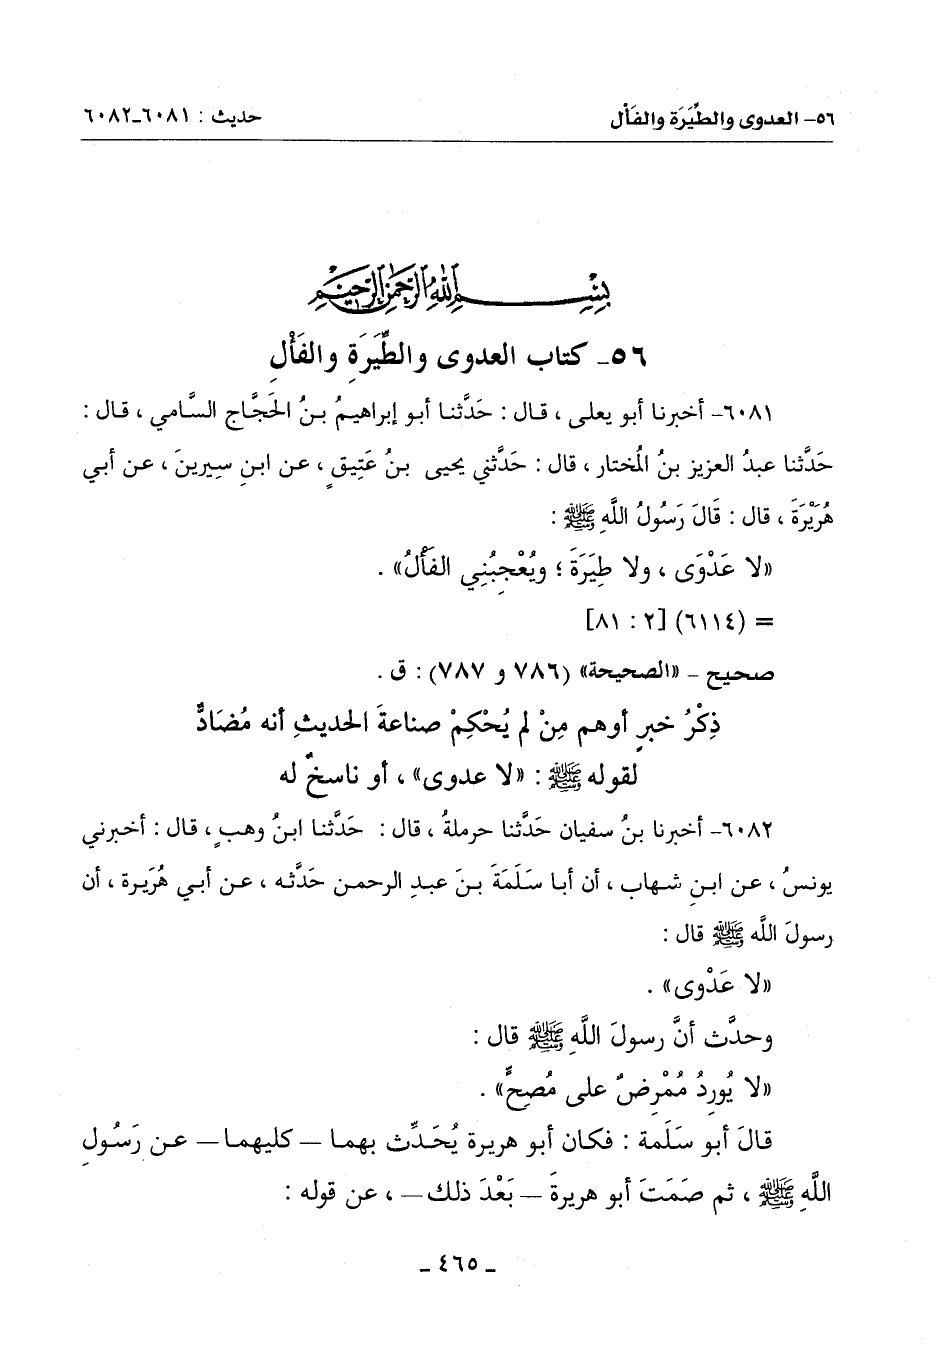 ٥٦- العدوى والطِّيَرَة والفَأْل
حديث : ٦٠٨١-٦٠٨٢
بِسْمِ اللَّهِ الرَّحْمَنِ الرَّحِيمِ
٥٦- كتاب العدوى والطِّيَرَةِ والفَأْلِ
٦٠٨١- أخبرنا أبو يعلى ، قال : حَدَّثنا أبو إبراهيمُ بنُ الحَجَّاجِ السَّامي ، قال :
حَدَّثنا عبدُ العزيز بنُ المُختار ، قال : حَدَّثني يحيى بنُ عَتِيقٍ ، عن ابنِ سِيرينَ ، عن أبي
هُرَيْرَةَ ، قال : قَالَ رَسُولُ اللَّهِ ﷺ :
«لا عَدْوَى ، ولا طِيَرَةَ ؛ ويُعْجِبُنِي الفَأْلُ» .
= (٦١١٤) [٢ : ٨١]
صحيح - «الصحيحة» (٧٨٦ و ٧٨٧) : ق .
ذِكْرُ خبرٍ أوهم مِنْ لم يُحْكِمْ صناعةَ الحديثِ أنه مُضَادٌّ
لقوله ﷺ : «لا عدوى» ، أو ناسخٌ له
٦٠٨٢- أخبرنا بنُ سفيان حَدَّثنا حرملةُ ، قال : حَدَّثنا ابنُ وهبٍ ، قال : أخبرني
يونسُ ، عن ابنِ شهاب ، أن أبا سَلَمَةَ بنَ عبدِ الرحمن حَدَّثه ، عن أبي هُرَيرة ، أن
رسولَ اللَّه ﷺ قال :
«لا عَدْوى» .
وحدَّث أنَّ رسولَ اللَّهِ ﷺ قال :
«لا يُورِدُ مُمْرِضٌ على مُصِحٍّ» .
قالَ أبو سَلَمة : فكان أبو هريرة يُحَدِّث بهما — كليهما — عن رَسُولِ
اللَّهِ ﷺ ، ثم صَمَتَ أبو هريرةَ — بَعْدَ ذلك — ، عن قوله :
- ٤٦٥ -